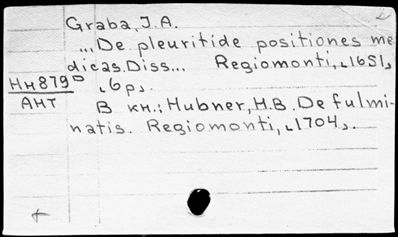 Graba, J.A.
,,, De pleuritide positiones me
dicas. Diss... Regiomonti, ⌞1651⌟
Нн879ᴰ ⌞6p⌟.
Ант В кн.: Hubner, H.B. De fulmi-
natis. Regiomonti, ⌞1704⌟.